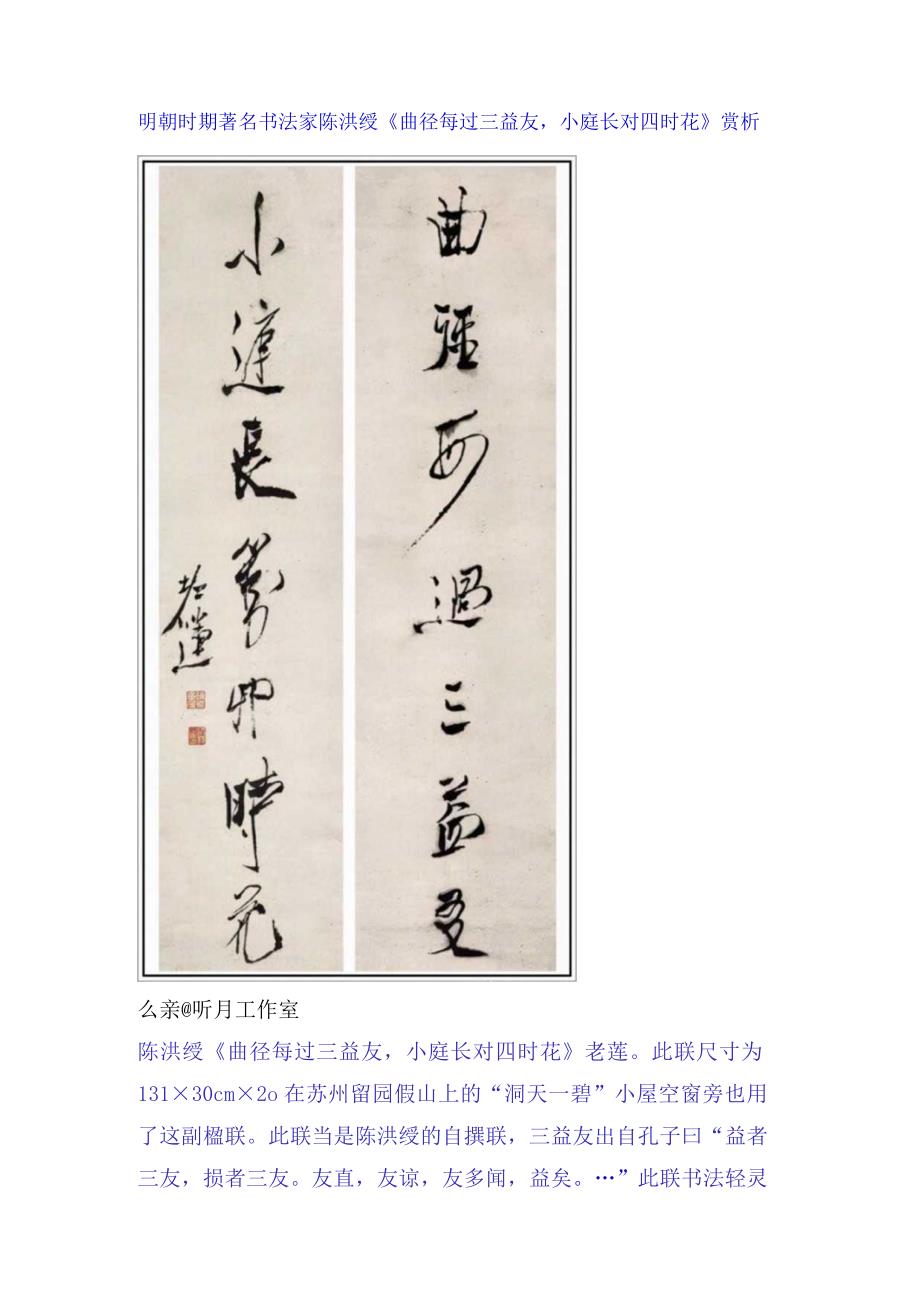 明朝时期著名书法家陈洪绶《曲径每过三益友，小庭长对四时花》赏析
曲徑每過三益友
小庭長對四時花
老蓮
么亲@听月工作室
陈洪绶《曲径每过三益友，小庭长对四时花》老莲。此联尺寸为
131×30cm×2o在苏州留园假山上的“洞天一碧”小屋空窗旁也用
了这副楹联。此联当是陈洪绶的自撰联，三益友出自孔子曰“益者
三友，损者三友。友直，友谅，友多闻，益矣。…”此联书法轻灵